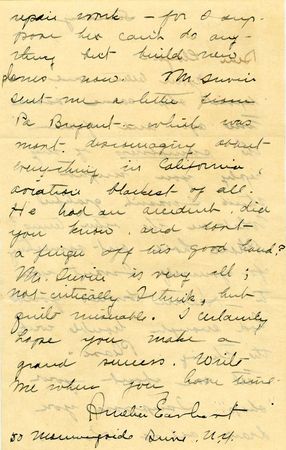 repair work — for I sup-
pose he can't do any-
thing but build new
planes now. Mr. Irwin
sent me a letter from
Pa Bryant — which was
most discouraging about
everything in California,
aviation blackest of all.
He had an accident, did
you know, and lost
a finger off his good hand?
Mr. Irwin is very ill;
not critically I think, but
quite miserable. I certainly
hope you make a
grand success. Write
me when you have time.
Amelia Earhart
50 Morningside Drive, N.Y.